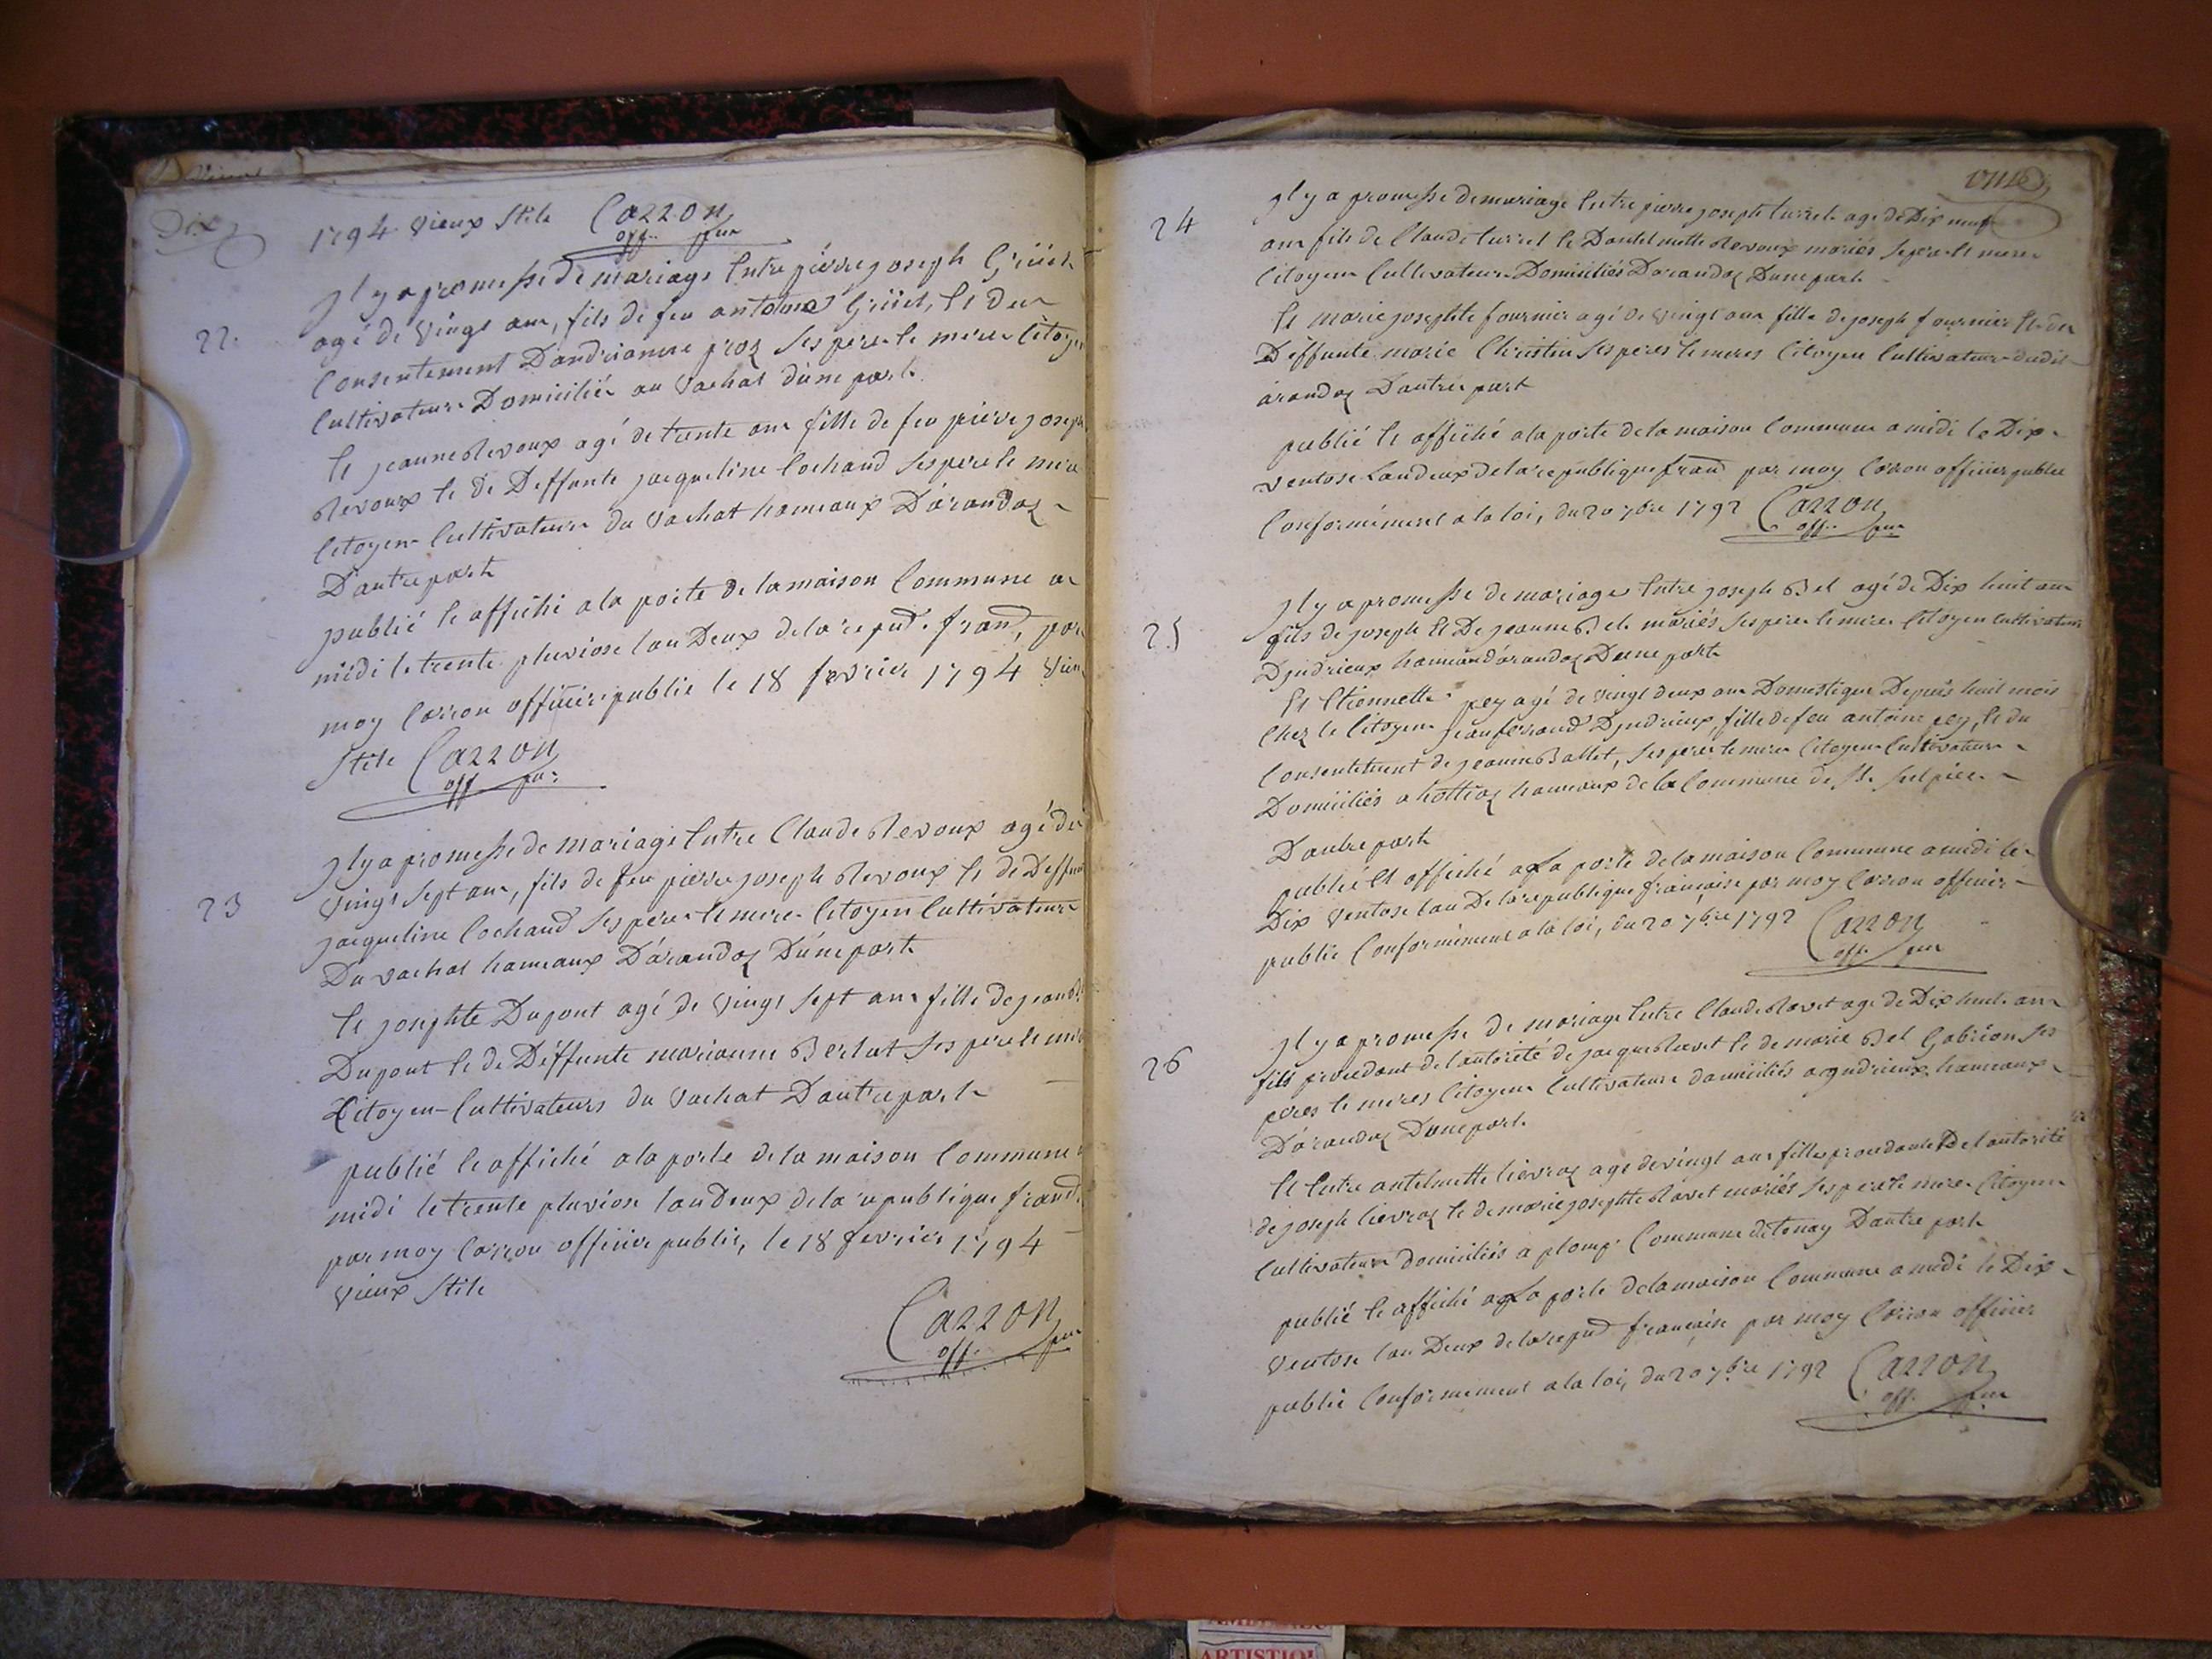 Dix
1794 vieux stile Carron
off. pu.
22.
Il y a promesse de mariage Entre pierre joseph Grüet
agé de vingt ans, fils de feu antoine Grüet, Et du
Consentement D'andrianne proz Ses pere Et mere Citoyen
Cultivateurs Domiciliés au vachat d'une part.
Et jeanne Revoux agé de trente ans fille de feu pierre joseph
Revoux Et de Deffunte jacqueline Cochand Ses pere Et mere
Citoyen Cultivateurs du vachat hameaux D'arandaz
D'autre part
publié Et affiché a la porte de la maison Commune a
midi le trente pluviose lan Deux de la repud. frand, par
moy Carron officier public le 18 fevrier 1794 vieux
Stile Carron
off pu.
23
Il y a promesse de mariage Entre Claude Revoux agé de
vingt sept ans, fils de feu pierre joseph Revoux Et de Deffunte
jacqueline Cochand Ses pere Et mere Citoyen Cultivateurs
Du vachat hameaux D'arandaz D'une part
Et josephte Dupont agé de vingt Sept ans fille de jean
Dupont Et de Déffunte marianne Berlat Ses pere Et mere
Citoyen Cultivateurs du vachat D'autre part
publié Et affiché a la porte de la maison Commune
midi le trente pluviose lan Deux de la republique frand
par moy Carron officier public, le 18 fevrier 1794
vieux Stile
Carron
off. pu
onze
24
Il y a promesse de mariage Entre pierre joseph turrel agé de Dix neuf
ans fils de Claude turrel Et Dantelmette Revoux mariés Se pere Et mere
Citoyens Cultivateurs Domiciliés Darandaz Dune part
Et marie josephte fournier agé de vingt ans fille de joseph fournier Et de
Deffunte marie Christin Ses peres Et meres Citoyen Cultivateurs dudit
arandaz Dautre part
publié Et affiché a la porte de la maison Commune a midi le Dix
ventose Lan deux de la republique frand par moy Carron officier public
Conformément a la loi, du 20 7bre 1792 Carron
off. pu
25
Il y a promesse de mariage Entre joseph Bel agé de Dix huit ans
fils de joseph Et De jeanne Bel mariés Ses pere Et mere Citoyen Cultivateurs
Dindrieux hameau d'arandaz Dune part
Et Etiennette pey agé de vingt deux ans Domestique Depuis huit mois
Chez le Citoyen jean ferrand Dindrieux, fille de feu antoine pey, Et du
Consentement de jeanne Ballet, Ses pere Et mere Citoyen Cultivateurs
Domiciliés a hottiaz hameaux de la Commune de St. Sulpice
Dautre part
publié Et affiché a La porte de la maison Commune a midi le
Dix ventose lan De la republique française par moy Carron officier
public Conformément a la loi, du 20 7bre 1792 Carron
off. pu
26
Il y a promesse de mariage Entre Claude Ravet agé de Dix huit ans
fils procedant de l'autorité de jacque Ravet Et de marie Bel Gabrion Ses
peres Et meres Citoyens Cultivateurs domiciliés a yndrieux hameaux
D'arandaz Dune part.
Et Entre antelmette lievraz agé de vingt ans fille procedante De l'autorité
de joseph lievraz Et de marie josephte Ravet mariés Ses pere Et mere Citoyens
Cultivateurs domiciliés a plomp Commune de tenay Dautre part
publié Et affiché a La porte de la maison Commune a midi le Dix
ventose lan Deux de la repud française par moy Carron officier
public Conformement a la loi, du 20 7bre 1792 Carron
off. pu
ARTISTIQU